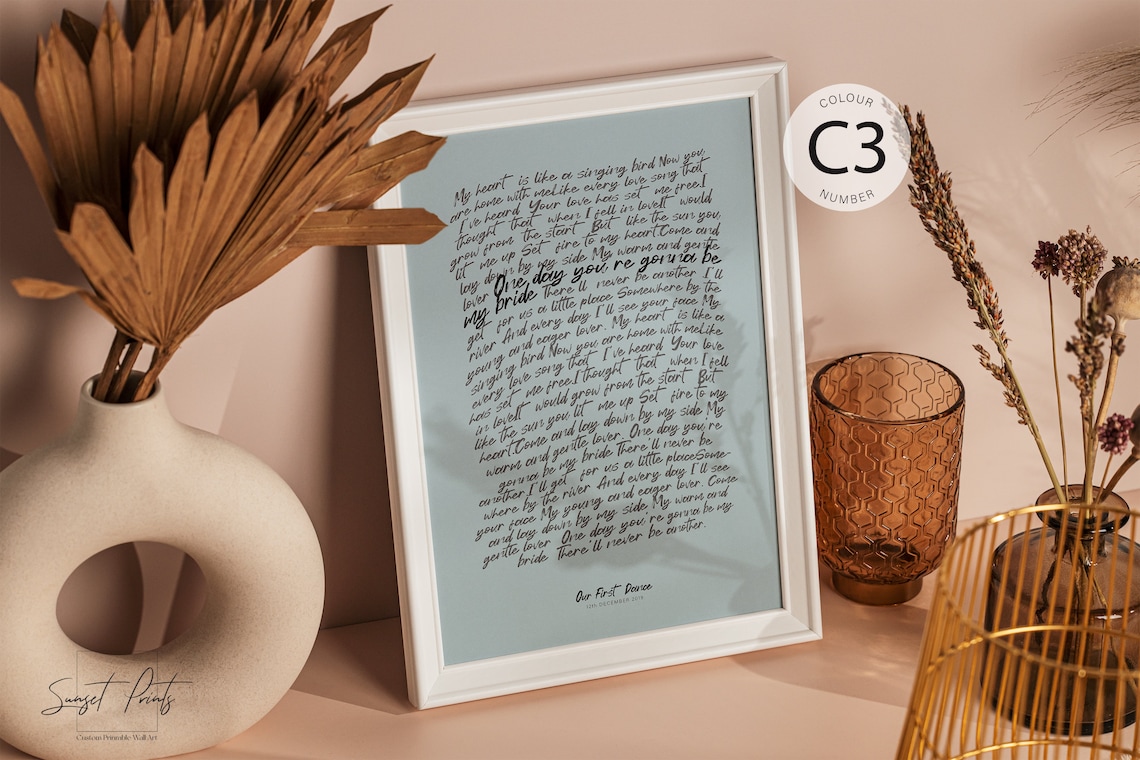 My heart is like a singing bird Now you,
are home with meLike every love song that
I've heard Your love has set me free.I
thought that when I fell in loveIt would
grow from the start But like the sun you,
lit me up Set fire to my heart.Come and
lay down by my side My warm and gentle
lover One day you,re gonna be
my bride There'll never be another I'll
get for us a little place Somewhere by the
river And every day I'll see your face My
young and eager lover. My heart is like a
singing bird Now you, are home with meLike
every love song that I've heard Your love
has set me free.I thought that when I fell
in loveIt would grow from the start But
like the sun you, lit me up Set fire to my
heart.Come and lay down by my side My
warm and gentle lover One day you,re
gonna be my bride There'll never be
another.I'll get for us a little placeSome-
where by the river And every day I'll see
your face My young and eager lover. Come
and lay down by my side My warm and
gentle lover One day you,re gonna be my
bride There'll never be another.
Our First Dance
12th DECEMBER 2018
COLOUR
C3
NUMBER
Sunset Prints
Custom Prinmble Wall Art